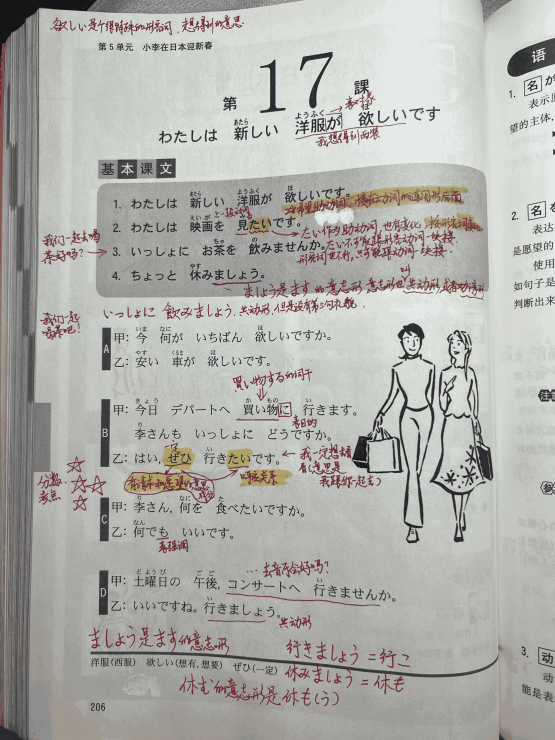 欲しい是个很特殊的形容词,想得到的意思
第5单元 小李在日本迎新春
第17課
わたしは 新しい 洋服が 欲しいです
表对象
我想得到西装
基本课文
1. わたしは 新しい 洋服が 欲しいです。
2. わたしは 映画を 見たいです。
3. いっしょに お茶を 飲みませんか。
4. ちょっと 休みましょう。
我们一起去喝茶好吗?
ましょう是ます的意志形
我们一起喝茶吧!
いっしょに 飲みましょう.
A
甲: 今 何が いちばん 欲しいですか。
乙: 安い 車が 欲しいです。
買い物する的词干
B
甲: 今日 デパートへ 買い物に 行きます。
表目的
李さんも いっしょに どうですか。
乙: はい, ぜひ 行きたいです。
我一定想去
我跟你一起去)
分数考点
C
甲: 李さん, 何を 食べたいですか。
乙: 何でも いいです。
表强调
…去音乐会好吗?
D
甲: 土曜日の 午後, コンサートへ 行きませんか。
乙: いいですね。行きましょう。
共动形
ましょう是ます的意志形
行きましょう=行こ
洋服(西服) 欲しい(想有,想要) ぜひ(一定)
休みましょう=休も
休む的意志形是休も(う)
206
语
1. 名が
表示愿
望的主体,
2. 名を
表达
是愿望的
使用
如句子是
判断出来
3. 动
动
能是表